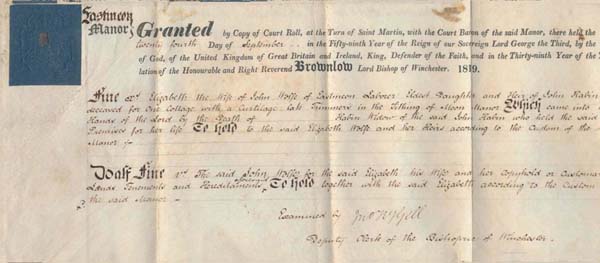 Eastmeon
Manor
Granted by Copy of Court Roll, at the Turn of Saint Martin, with the Court Baron of the said Manor, there held the
twenty fourth Day of September in the Fifty-ninth Year of the Reign of our Sovereign Lord George the Third, by the
of God, of the United Kingdom of Great Britain and Ireland, King, Defender of the Faith, and in the Thirty-ninth Year of the
lation of the Honourable and Right Reverend Brownlow Lord Bishop of Winchester. 1819.
Fine Elizabeth the Wife of John Wolfe of Eastmeon Labourer Eldest Daughter and Heir of John Rabin
deceased for One Cottage with a Curtilage late Trimmers in the tithing of Meon Manor Which came into
Hands of the Lord by the Death of Rabin Widow of the said John Rabin who held the said
Premises for her life To hold to the said Elizabeth Wolfe and her Heirs according to the Custom of the
Manor
Half Fine The said John Wolfe for the said Elizabeth his Wife and her Copyhold or Customary
Lands Tenements and Hereditaments found To hold together with the said Elizabeth according to the Custom
the said Manor
Examined by
Deputy Clerk of the Bishopric of Winchester.